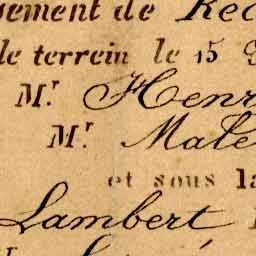 gement de Rec
le terrein le 15
Mr Henr
Mr Male
et sous la
Lambert